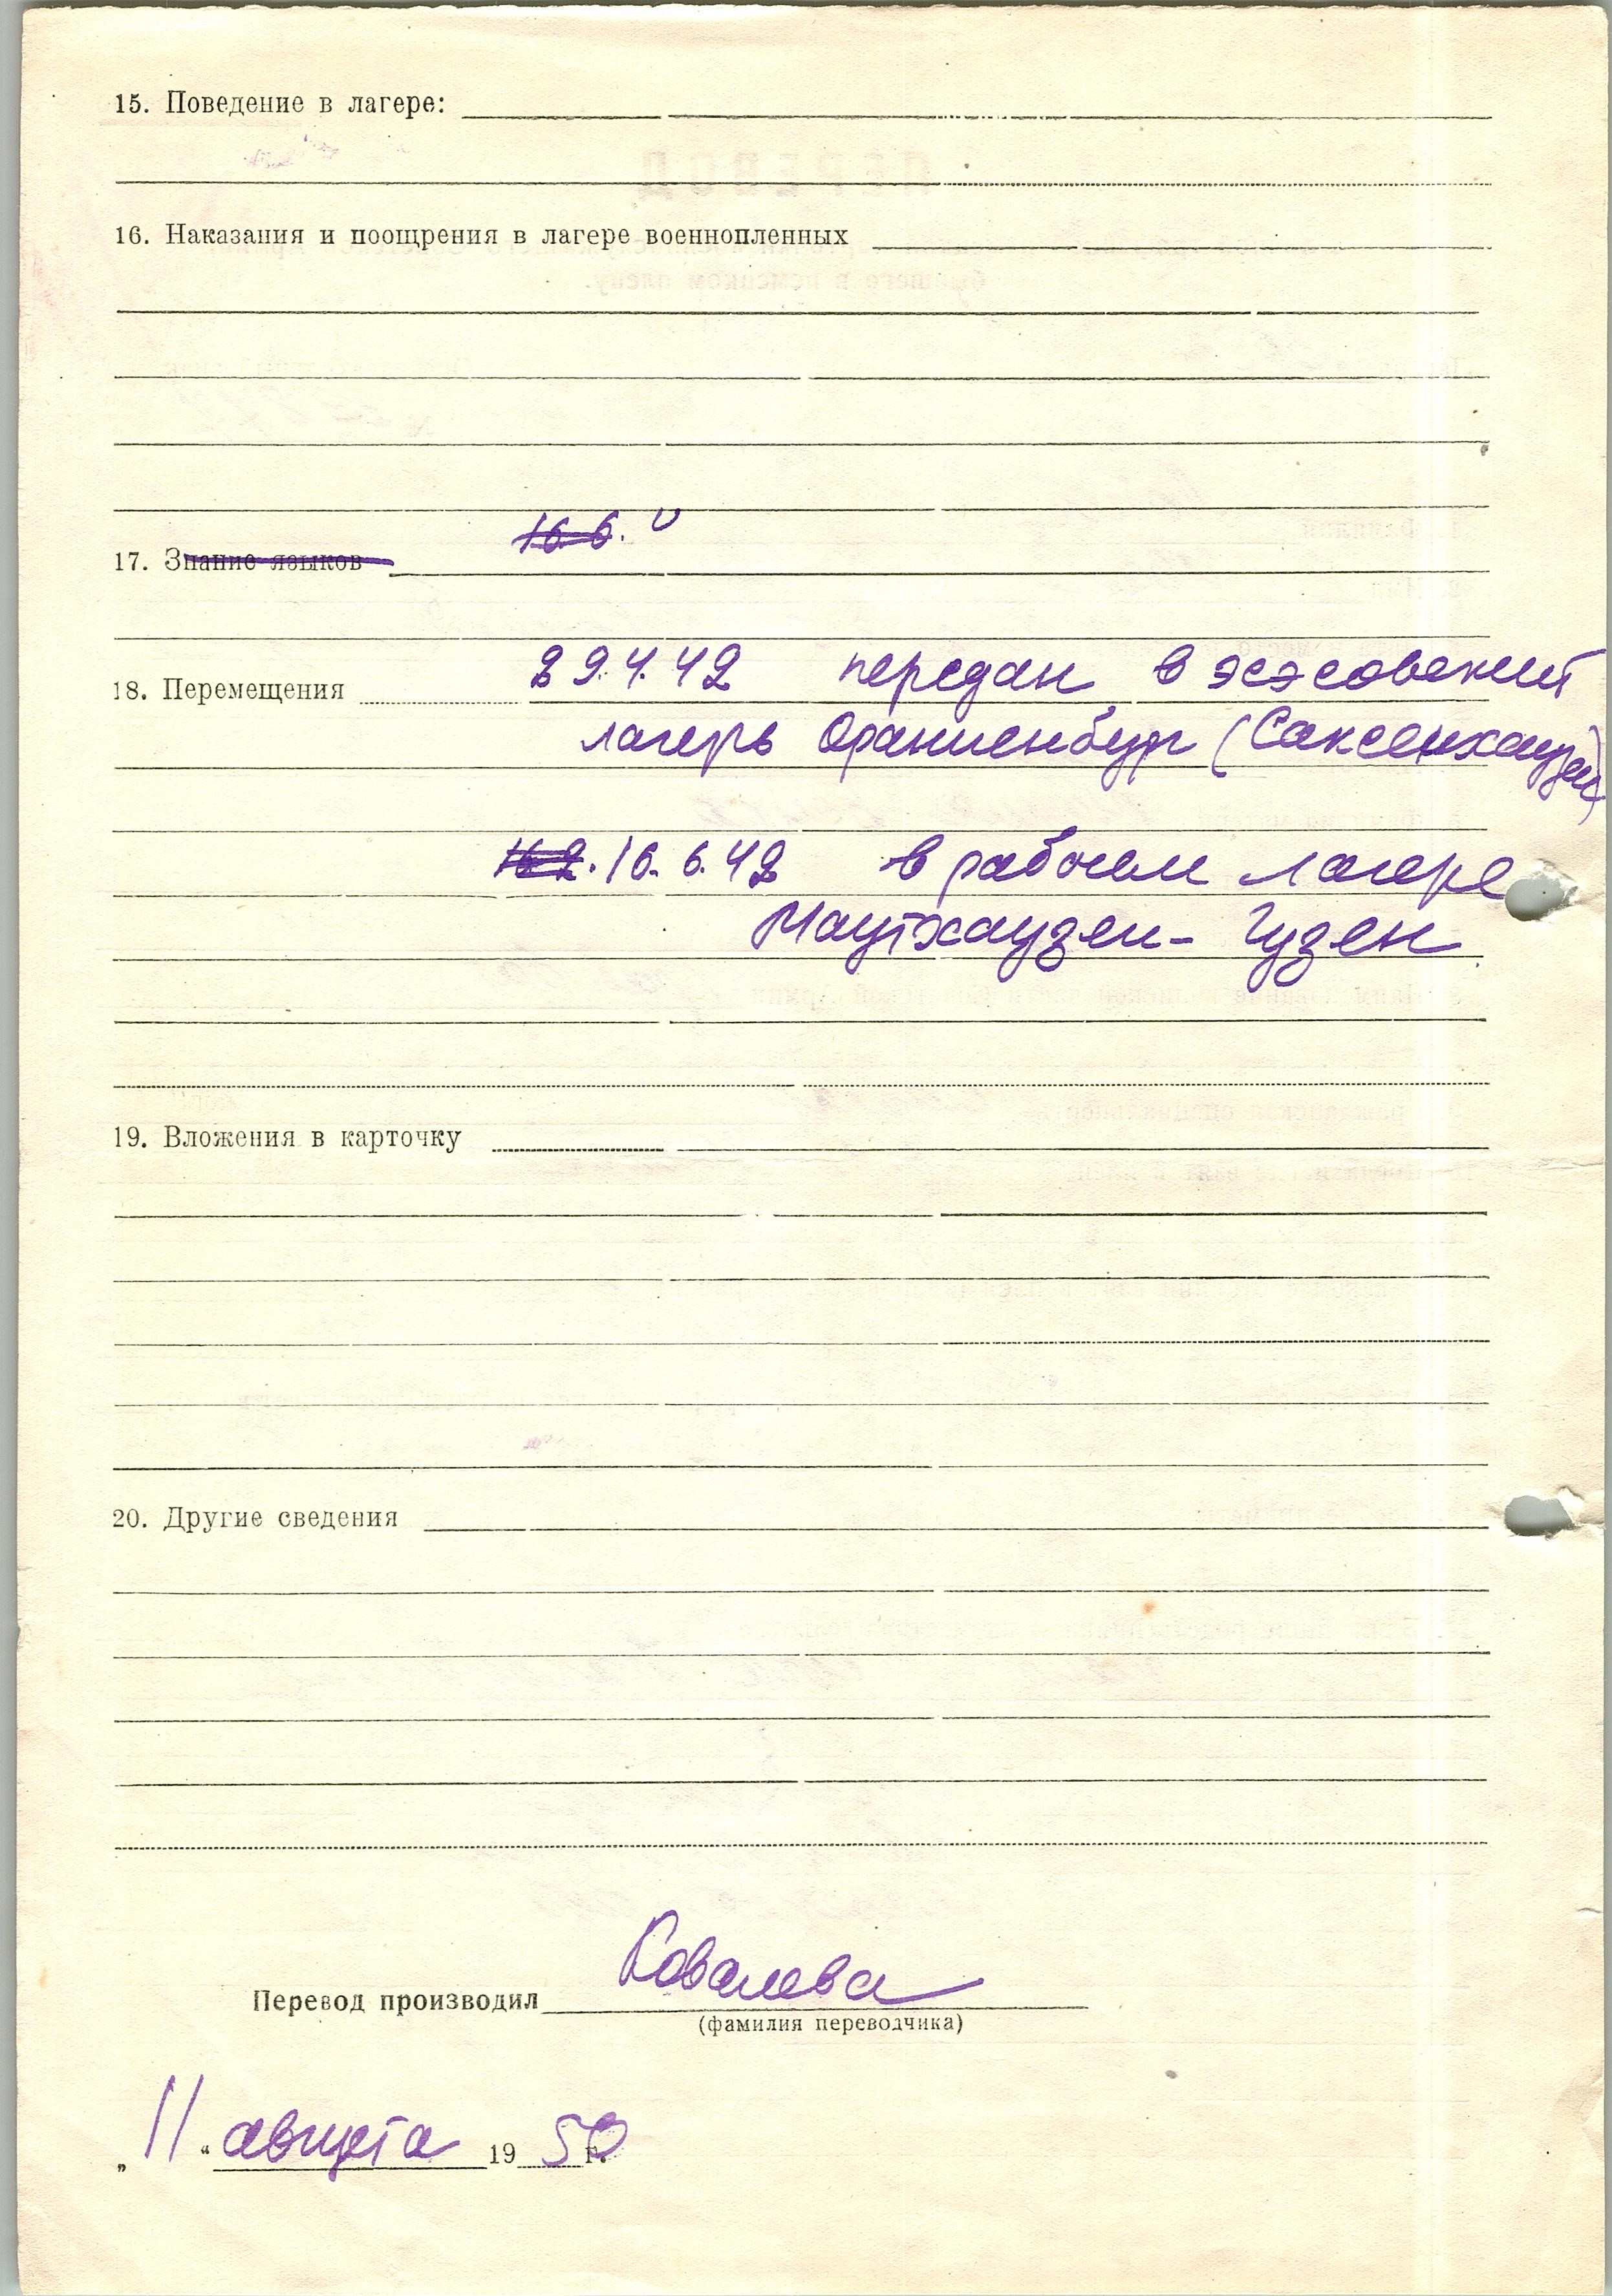 15. Поведение в лагере:
16. Наказания и поощрения в лагере военнопленных
16.6.
17. Знание языков
29.4.42 передан в эсэсовский
18. Перемещения
лагерь Ораниенбург (Саксенхаузен)
16.2. 16.6.42 в рабочем лагере
Маутхаузен - Гузен
19. Вложения в карточку
20. Другие сведения
Ковалева
Перевод производил
(фамилия переводчика)
„11“ августа 1950 г.